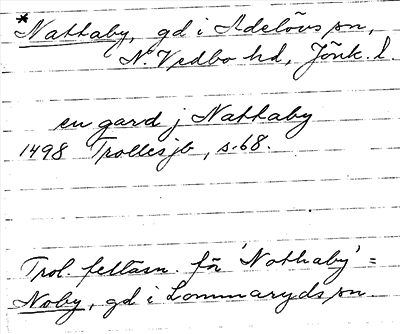 * Nattaby, gd i Adelövs sn,
N. Vedbo hd, Jönk. l.
en gard j Nattaby
1498 Trolles jb, s. 68.
Trol. feltäsn. för 'Nothaby' =
Noby, gd i Lommaryds sn.